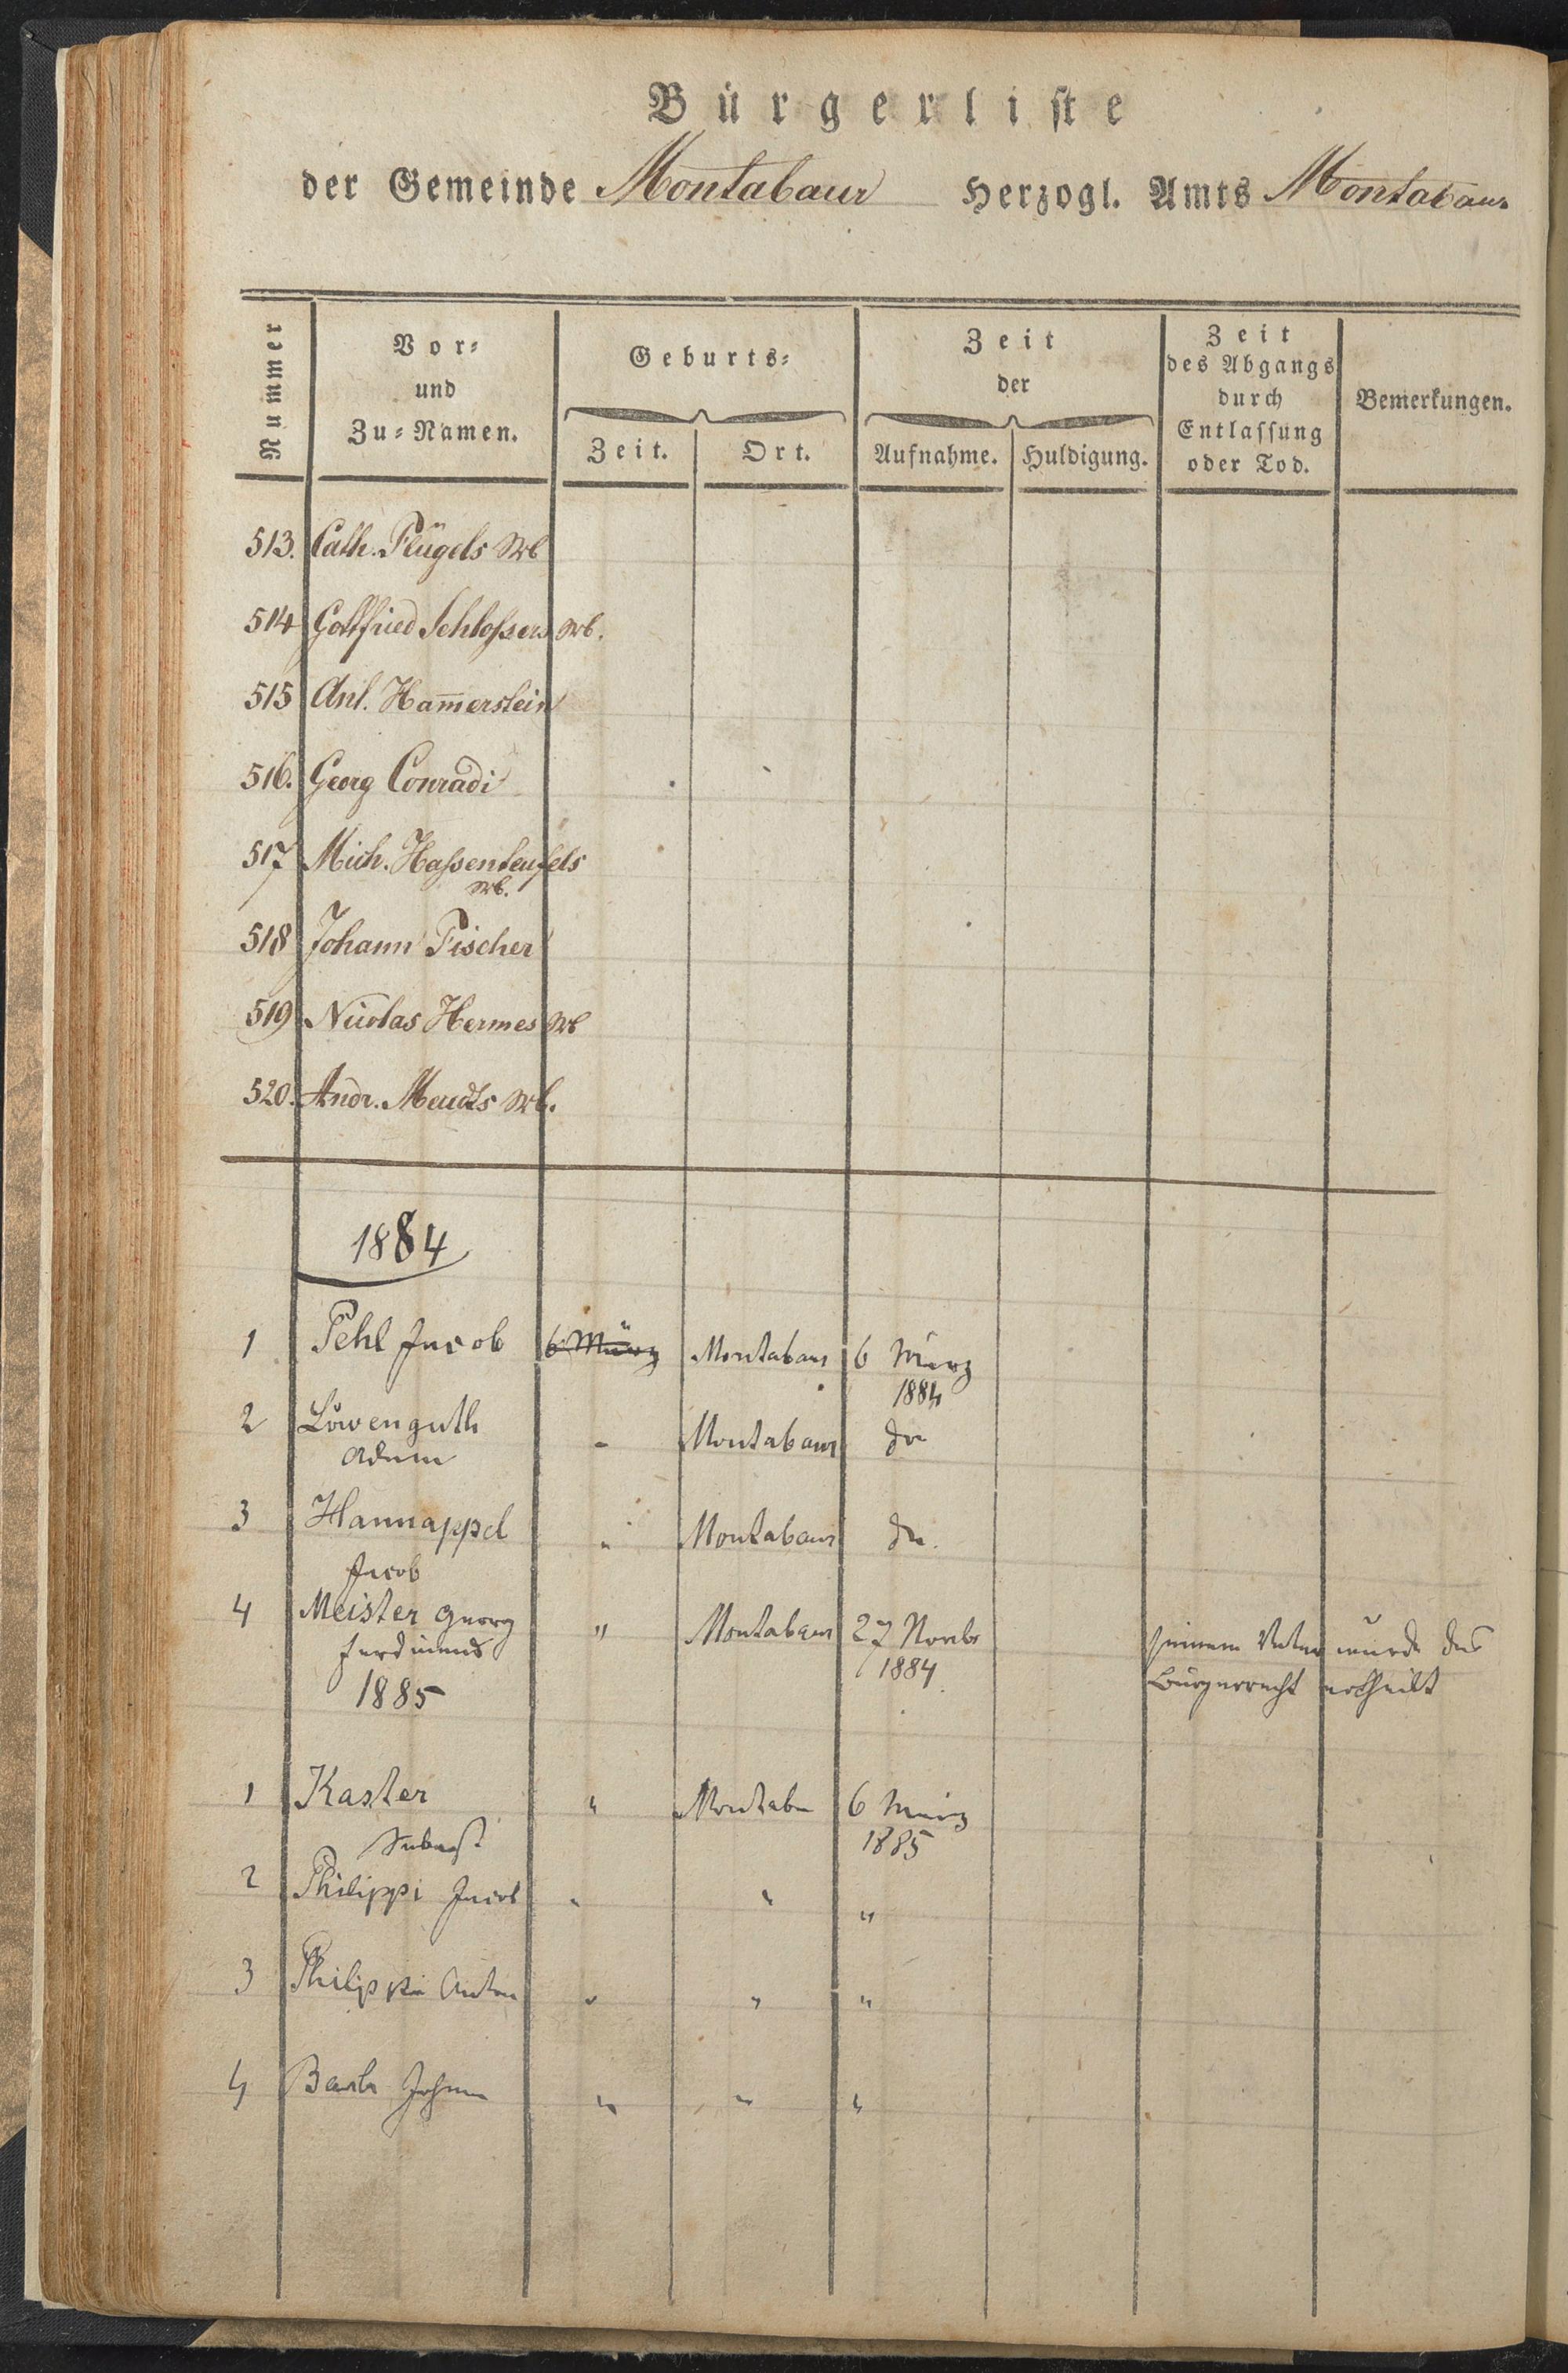 Bürgerliste
der Gemeinde Montabaur Herzogl. Amts Montabaur
Nummer
Vor-
und
Zu-Namen.
Geburts-
Zeit. Ort.
Zeit
der
Aufnahme. Huldigung.
Zeit
des Abgangs
durch
Entlassung
oder Tod.
Bemerkungen.
513. Cath. Flügels Wb
514 Gottfried Schloßers Wb.
515 Ant. Ham̅erstein
516. Georg Conradi
517 Mich. Haßenteufels
Wb.
518 Johann Fischer
519 Nicolas Hermes Wb
520. Andr. Meudts Wb.
1884
1 Pehl Jacob 6 März Montabaur 6 März
1884
2 Löwenguth " Montabaur do
Adam
3 Hannappel " Montabaur do.
Jacob
4 Meister Georg " Montabaur 27 Novbr seinem Vater wurde das
Ferdinand 1884 Bürgerrecht ertheilt
1885
1 Kaster " Montab 6 März
Sebast 1885
2 Philippi Jacob " " "
3 Philippi Anton " " "
4 Johann " " "